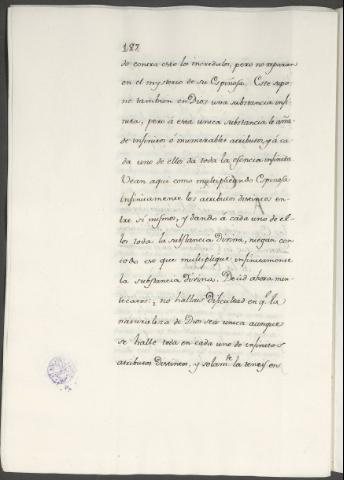 187
do contra esto los incredulos, pero no reparan
en el mysterio de su Espinosa. Este supo
ne tambien en Dios una substancia infi
nita, pero á esta unica substancia le aña
de infinitos ó inumerables atributos, y á ca
da uno de ellos da toda la esencia infinita
Vean aqui como multiplicando Espinosa
infinitamente los atributos distintos en
tre sí mismos, y dando á cada uno de el
los toda la substancia divina, niega con
todo eso que multiplique infinitamente
la substancia divina. Decid ahora men
tecatos: no hallais dificultad en q.e la
naturaleza de Dios sea unica aunque
se halle toda en cada uno de infinitos
atributos distintos, y solam.te la teneis en